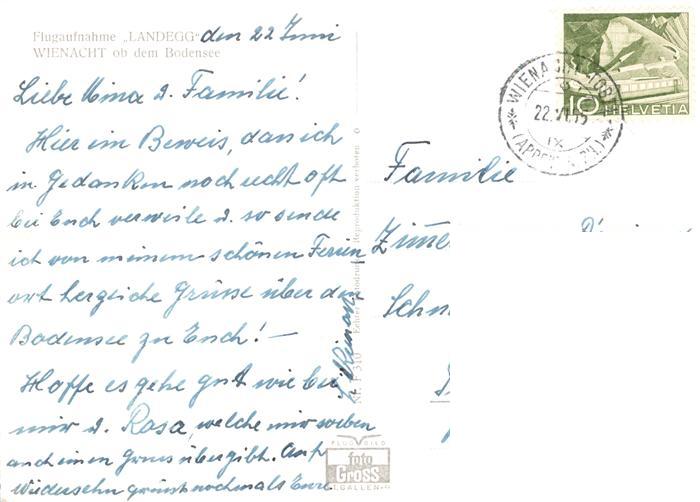 Flugaufnahme „LANDEGG"
WIENACHT ob dem Bodensee
den 22 Juni
Liebe Mina u. Familie!
Hier im Beweis, dass ich
in Gedanken noch recht oft
bei Euch verweile u. so sende
ich von meinem schönen Ferien
ort herzliche Grüsse über den
Bodensee zu Euch! —
Hoffe es gehe gut wie bei
mir u. Rosa, welche mir soeben
auch einen Gruss übergibt. Auf
Wiedersehn grüsst nochmals Eure
Reproduktion verboten
Nr. F 310
FLUGBILD
foto
Gross
ST.GALLEN
10 HELVETIA
WIENACHT-TOB
22.VI.55
IX
Familie